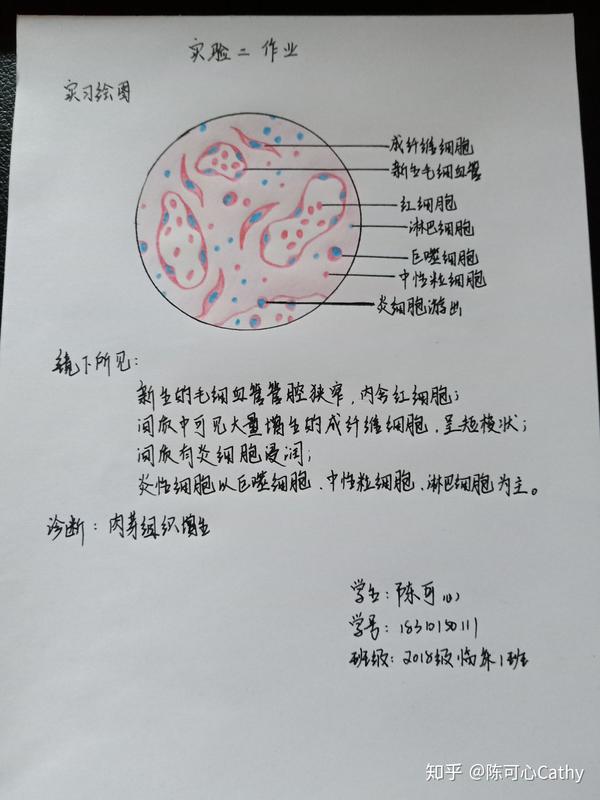 实验二 作业
实习绘图
成纤维细胞
新生毛细血管
红细胞
淋巴细胞
巨噬细胞
中性粒细胞
炎细胞游出
镜下所见：
新生的毛细血管管腔狭窄，内含红细胞；
间质中可见大量增生的成纤维细胞，呈短梭状；
间质有炎细胞浸润；
炎性细胞以巨噬细胞、中性粒细胞、淋巴细胞为主。
诊断：肉芽组织增生
学生：陈可心
学号：18310150111
班级：2018级临床1班
知乎 @陈可心Cathy